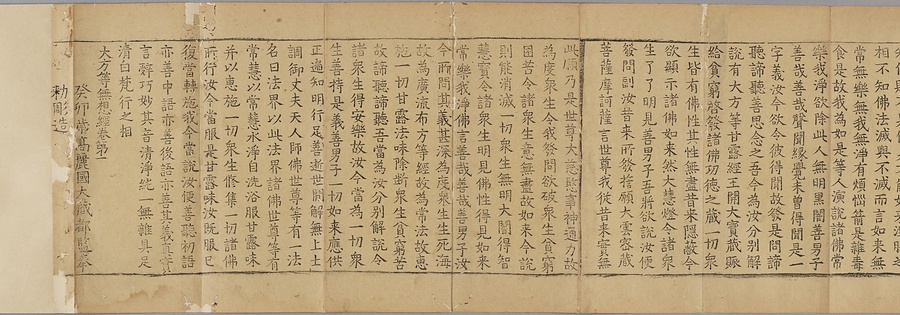 相不知佛法滅與不滅而言如來無
常無樂無我無淨有煩惱箭是雜毒
食是故我為如是等人演說諸佛常
樂我淨欲除此人無明黑闇善男子
善哉善哉聲聞緣覺未曾得聞是一
字義汝今欲令彼得聞故發是問諦
聽諦聽善思念之吾今為汝分別解
說有大方等甘露經王開大寶藏賑
給貧窮啓發諸佛功德之藏一切衆
生皆有佛性其性無盡昔來隱蔽今
欲顯示諸佛如來然大慧燈令諸衆
生了了明見善男子吾將欲說汝便
發問副汝昔來所發誓願大雲密藏
菩薩摩訶薩言世尊我從昔來實無
此願乃是世尊大慈神通力故
為度衆生令我發問欲破衆生貧窮
困苦令諸衆生意無盡故如來今說
則能消滅一切衆生無明大闇得智
慧寶令諸衆生明見佛性得見如來
常樂我淨佛言善哉善哉善男子汝
今所問其義甚深為度衆生生死海
故為廣流布方等經故為常法故惠
施一切甘露法味除斷衆生生貧窮苦
故諦聽諦聽吾當為汝分別解說令
諸衆生得安樂故汝今當為一切衆
生善持是義善男子一切如來應供
正遍知明行足善逝世間解無上士
調御丈夫天人師佛世尊等有一法
名曰法界以此法界諸佛世尊等有
常慧以常慧水淨自洗浴服甘露味
并以惠施一切衆生修集一切諸佛
所行汝今當服是甘露味汝旣服已
復當轉施我今當說汝便善聽初語
亦善中語亦善後語亦善其義
言辭巧妙其音清淨純一無雜具足
清白梵行之相
大方等無想經卷第一
癸卯歲高麗國大藏都監奉
勅彫造